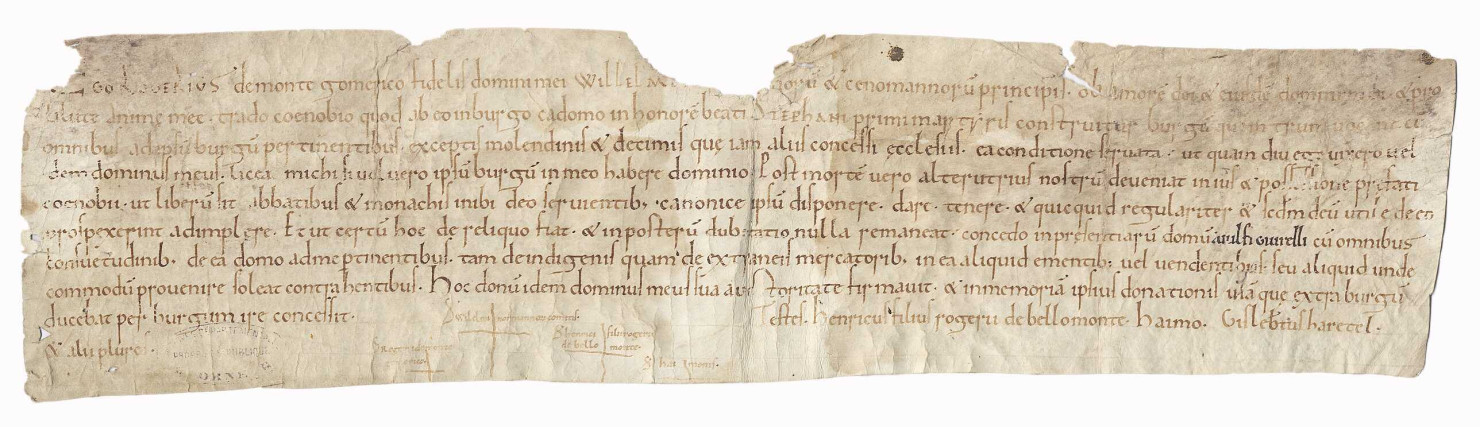 EGO ROGERIUS de monte gomerico fidelis domini mei WILLELMI & cenomannorū principis. ob amorē dei & eiusdē domini mei & pro
salute animę meę. trado coenobio quod ab eo in burgo cadomo in honorē beati STEPHANI primi martyris construitur burgū quem
omnibus ad ipsū burgū pertinentibus. exceptis molendinis & decimis quę iam aliis concessi ęcclesiis. ea conditione servata. ut quam diu ego vixero vel
dem dominus meus. liceat michi vel vero ipsū burgū in meo habere dominio. Post mortē vero alterutrius nostrū deveniat in ius & possessione prefati
coenobii. ut liberū sit abbatibus & monachis inibi deo servientib; canonice ipsū disponere. dare. tenere. & quicquid regulariter & scdm deū utile de eo
prospexerint adimplere. Et ut certū hoc de reliquo fiat. & in posterū dubitatio nulla remaneat. concedo in presentiarū domū arulfi gurelli cū omnibus
consuetudinib; de ea domo ad me ptinentibus. tam de indigenis quam de extraneis mercatorib; in ea aliquid ementib; vel vendentibus. seu aliquid unde
commodū provenire soleat contrahentibus. Hoc donū idem dominus meus sua auctoritate firmavit. & in memoriā ipsius donationis viā que extra burgū
ducebat per burgum ire concessit. Testes. henricus filius rogerii de bellomonte. haimo. Gislebtus haretel.
& alii plures.
S henrici filii rogerii
de bello monte.
S haimonis.